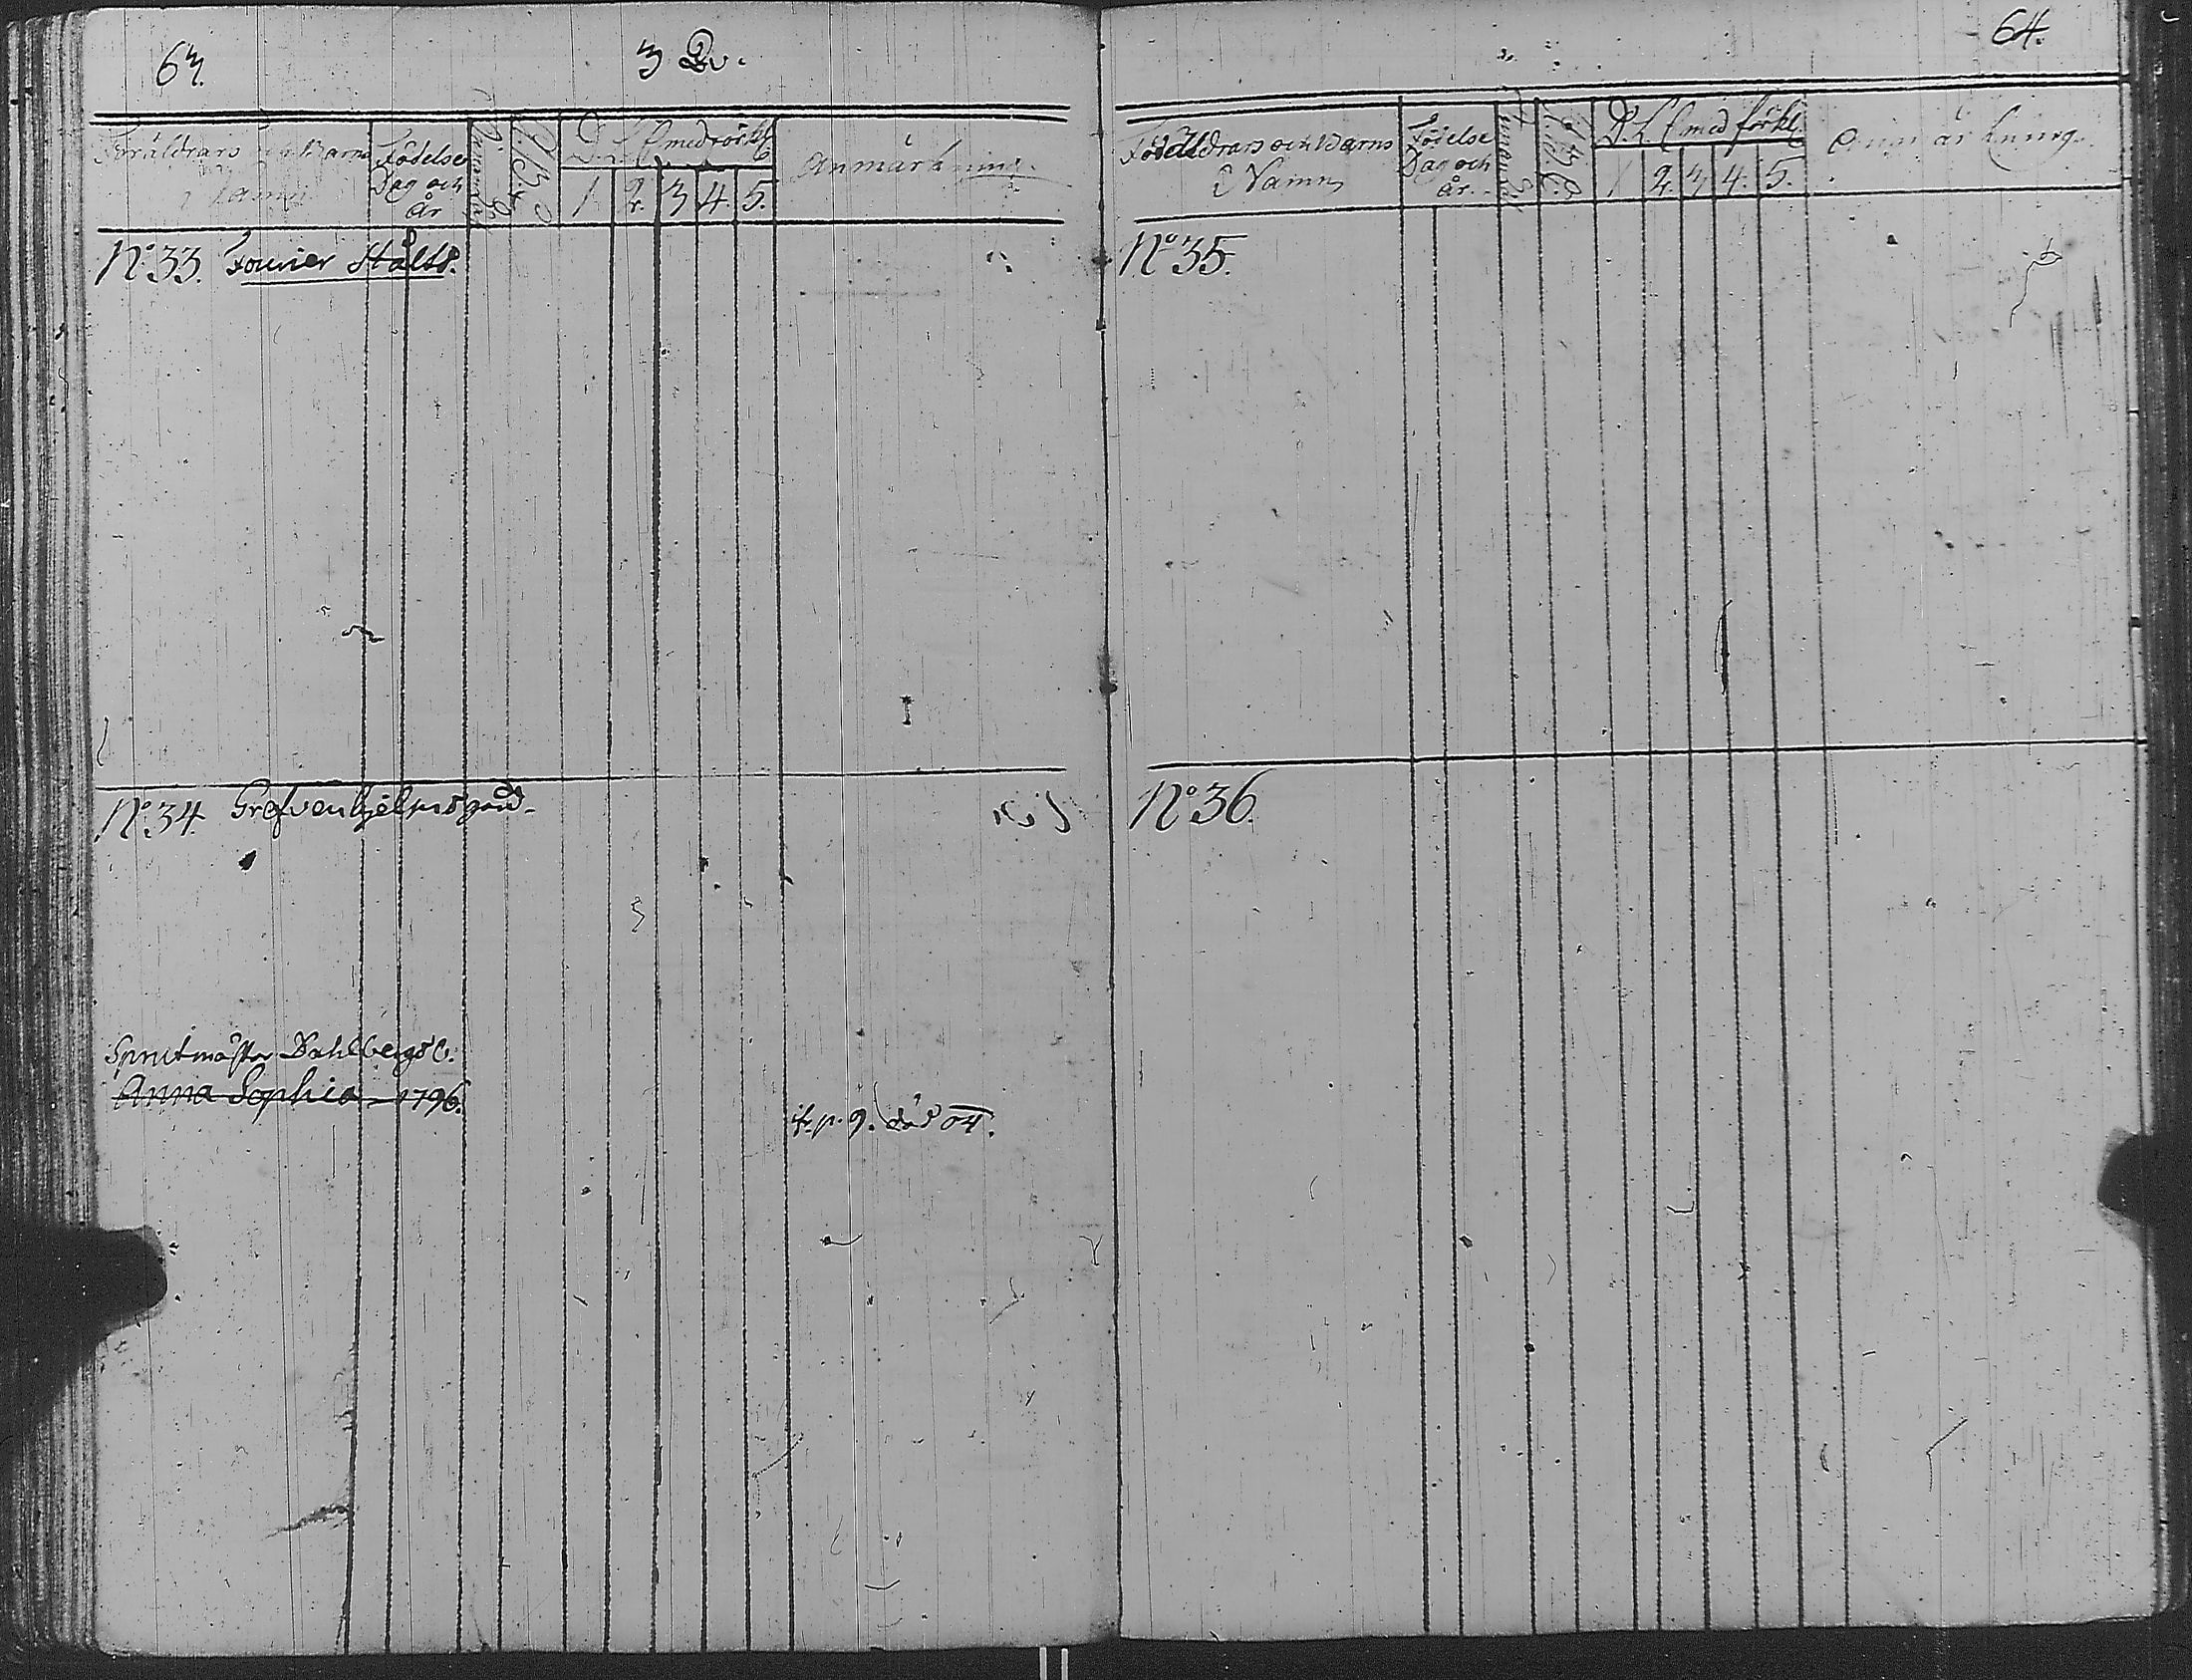 63.
3 Qv.
Föräldrars och Barns Namn
Födelse Dag och år
A. B. C.
D. L. C med förkl.
1 2. 3 4. 5.
Anmärkning.
No 33. Fourier Stålts.
No 34. Grefvenhjelmsgård.
Sprutmäster Dahlbergs C.
Anna Sophia 1796.
fr. p. 9. död 04.
64.
Föräldrars och Barns Namn
Födelse Dag och år.
A. B. C.
D. L. C med förkl.
1 2. 3 4. 5.
Anmärkning.
No 35.
No 36.